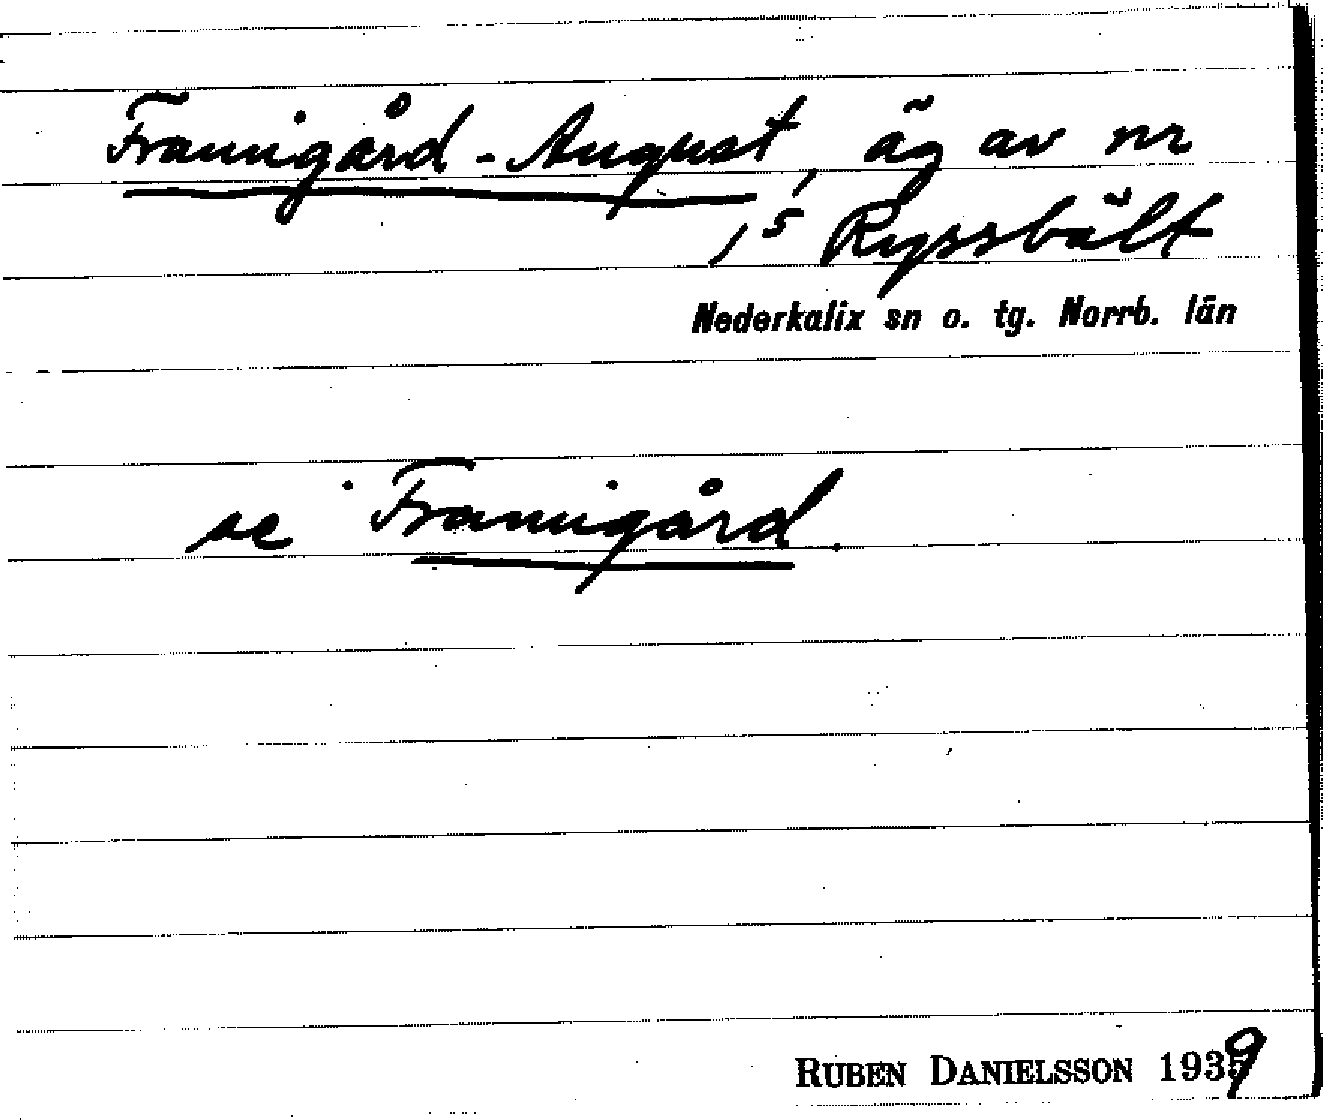 Frannigård-August, äg av nr
1⁵ Ryssbält
Nederkalix sn o. tg. Norrb. län
se Frannigård.
RUBEN DANIELSSON 1939